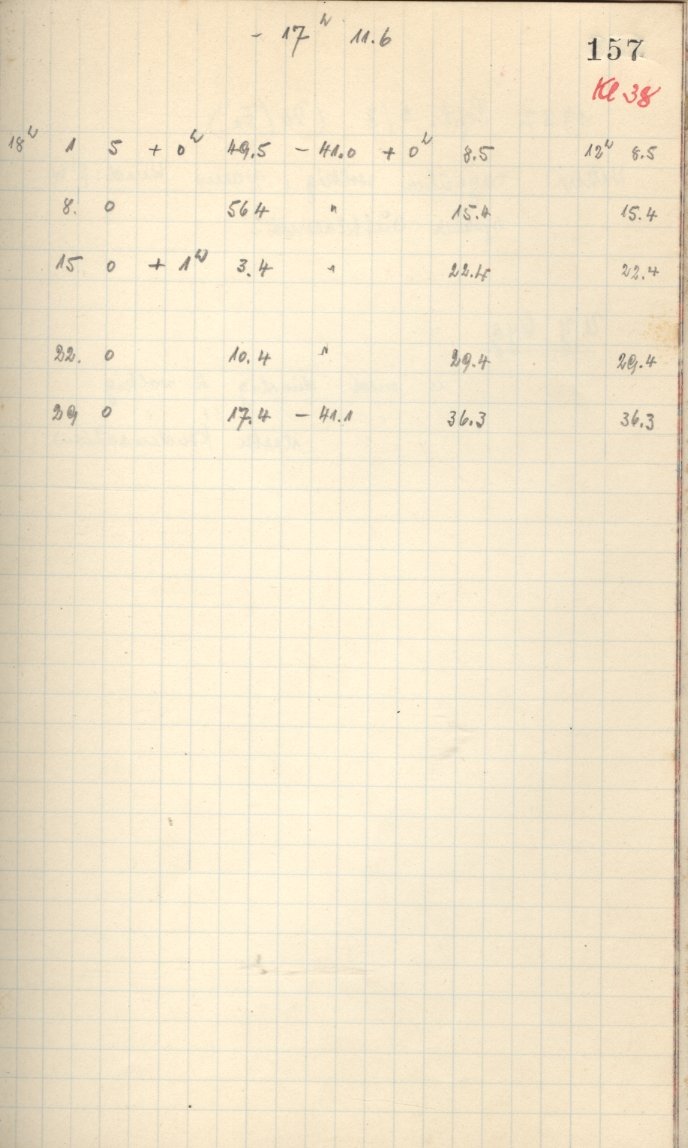 - 17ʰ 11.6
157
Kl 38
18ʰ 1 5 + 0ʰ 49.5 - 41.0 + 0ʰ 8.5 12ʰ 8.5
8. 0 56 4 " 15.4 15.4
15 0 + 1ʰ 3.4 " 22.4 22.4
22. 0 10.4 " 29.4 29.4
29 0 17.4 - 41.1 36.3 36.3